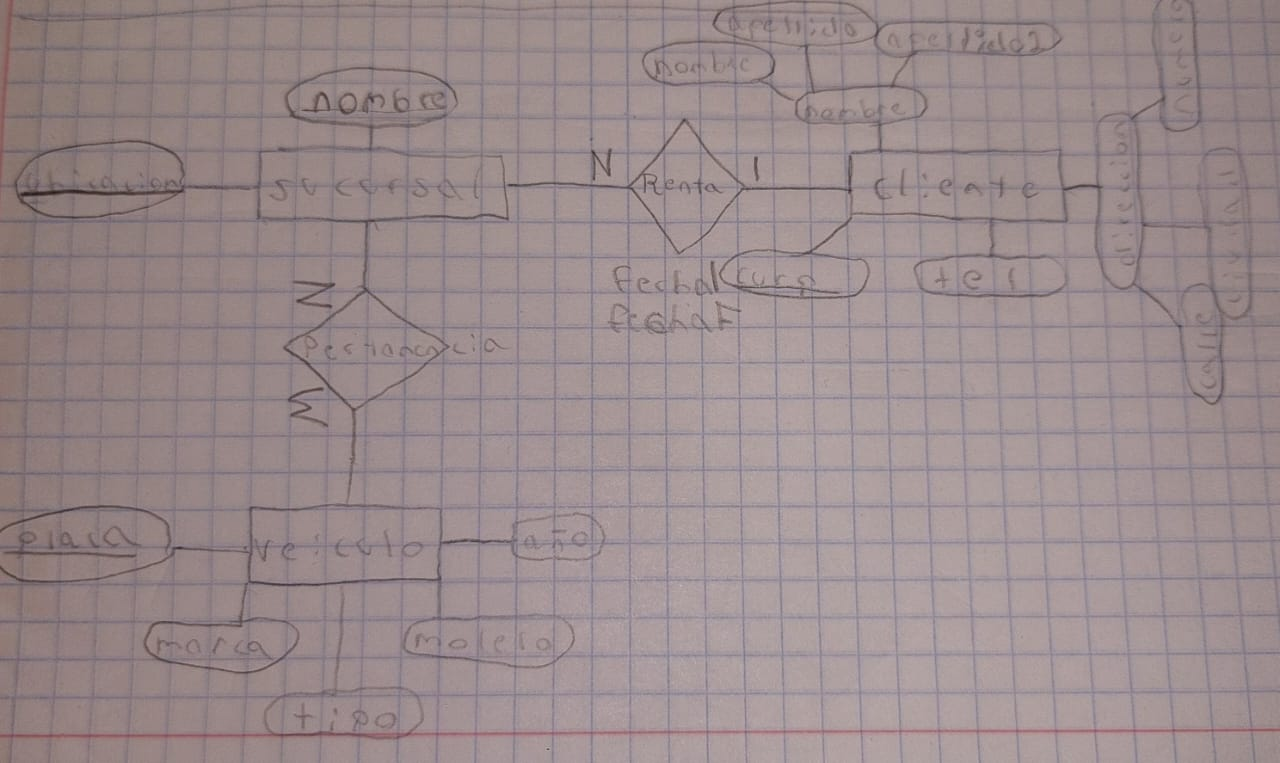 apellido
apellido2
nombre
nombre
nombre
ubicacion
sucursal
N
Renta
1
cliente
direccion
ciudad
calle
fechaI
curp
tel
fechaF
N
Pertianencia
M
placa
veiculo
año
marca
molelo
tipo